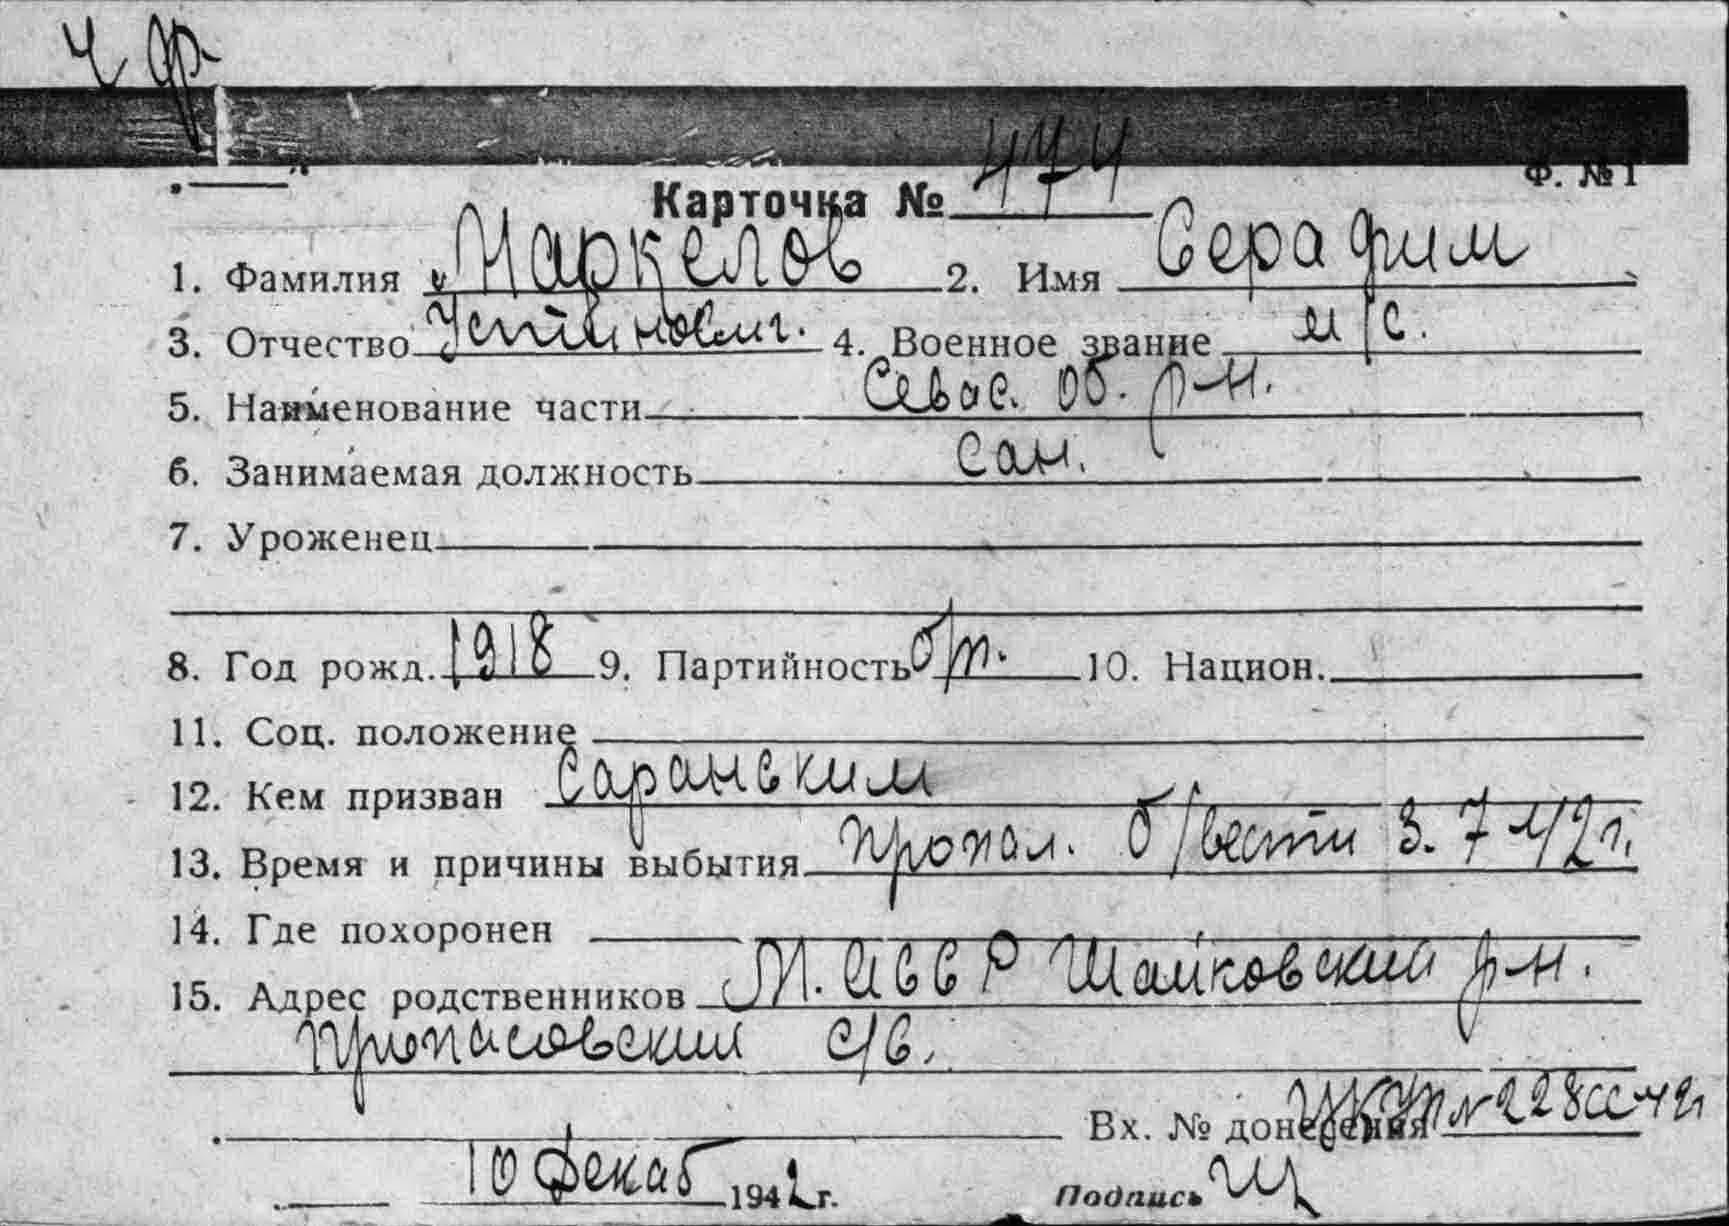 ч др.
Ф. № 1
Карточка № 474
1. Фамилия Маркелов 2. Имя Серафим
3. Отчество Устинович. 4. Военное звание м/с.
5. Наименование части Севас. об. р-н.
6. Занимаемая должность Сан.
7. Уроженец
8. Год рожд. 1918 9. Партийность б/п. 10. Национ.
11. Соц. положение
12. Кем призван Саранским
13. Время и причины выбытия пропал. б/вести 3.7 42 г.
14. Где похоронен
15. Адрес родственников М. АССР Шайковский р-н.
с/с.
Вх. № донесения № 228сс 42г
10 Декаб 1942 г. Подпись